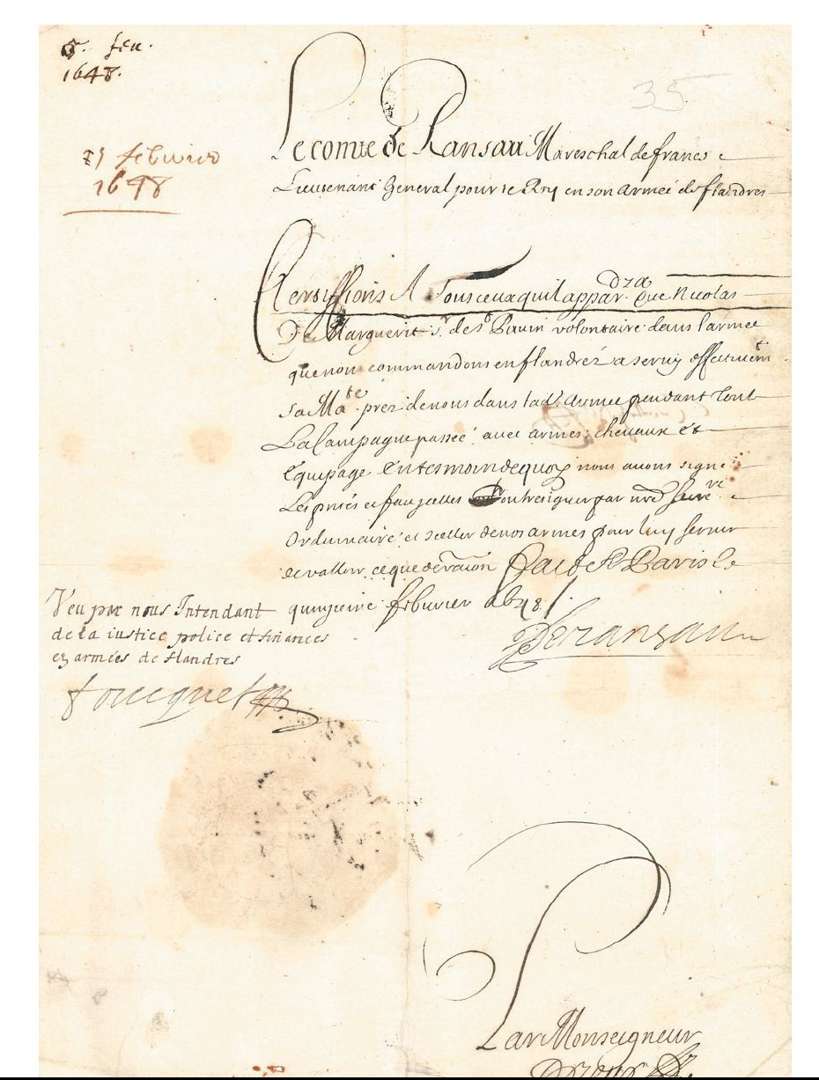 5. feu.
1648.
35
febvrier
1648
Le comte de Ransau Mareschal de france
Lieutenant General pour le Roy en son armée de flandres
Certiffions A Tous ceux quil appar.dza que Nicolas
De Marguerit sr. de st Pauin volontaire dans larmee
que nous commandons en flandres a seruy effectiuemt
sa Mate. prez de nous dans lad. Armee pendant Tout
La Campagne passée auec armes cheuaux et
Equipage En tesmoin de quoy nous auons signé
Les pntés et faict icelles Contresigner par nre secre.re
Ordinaire et sceller de nos armes pour luy seruir
et valloir ce que de raison Faict A Paris le
quinzeine febvrier 1648 /.
De ransau
Veu par nous Intendant
de la iustice police et finances
ez armées de flandres
foucquet
Par Monseigneur